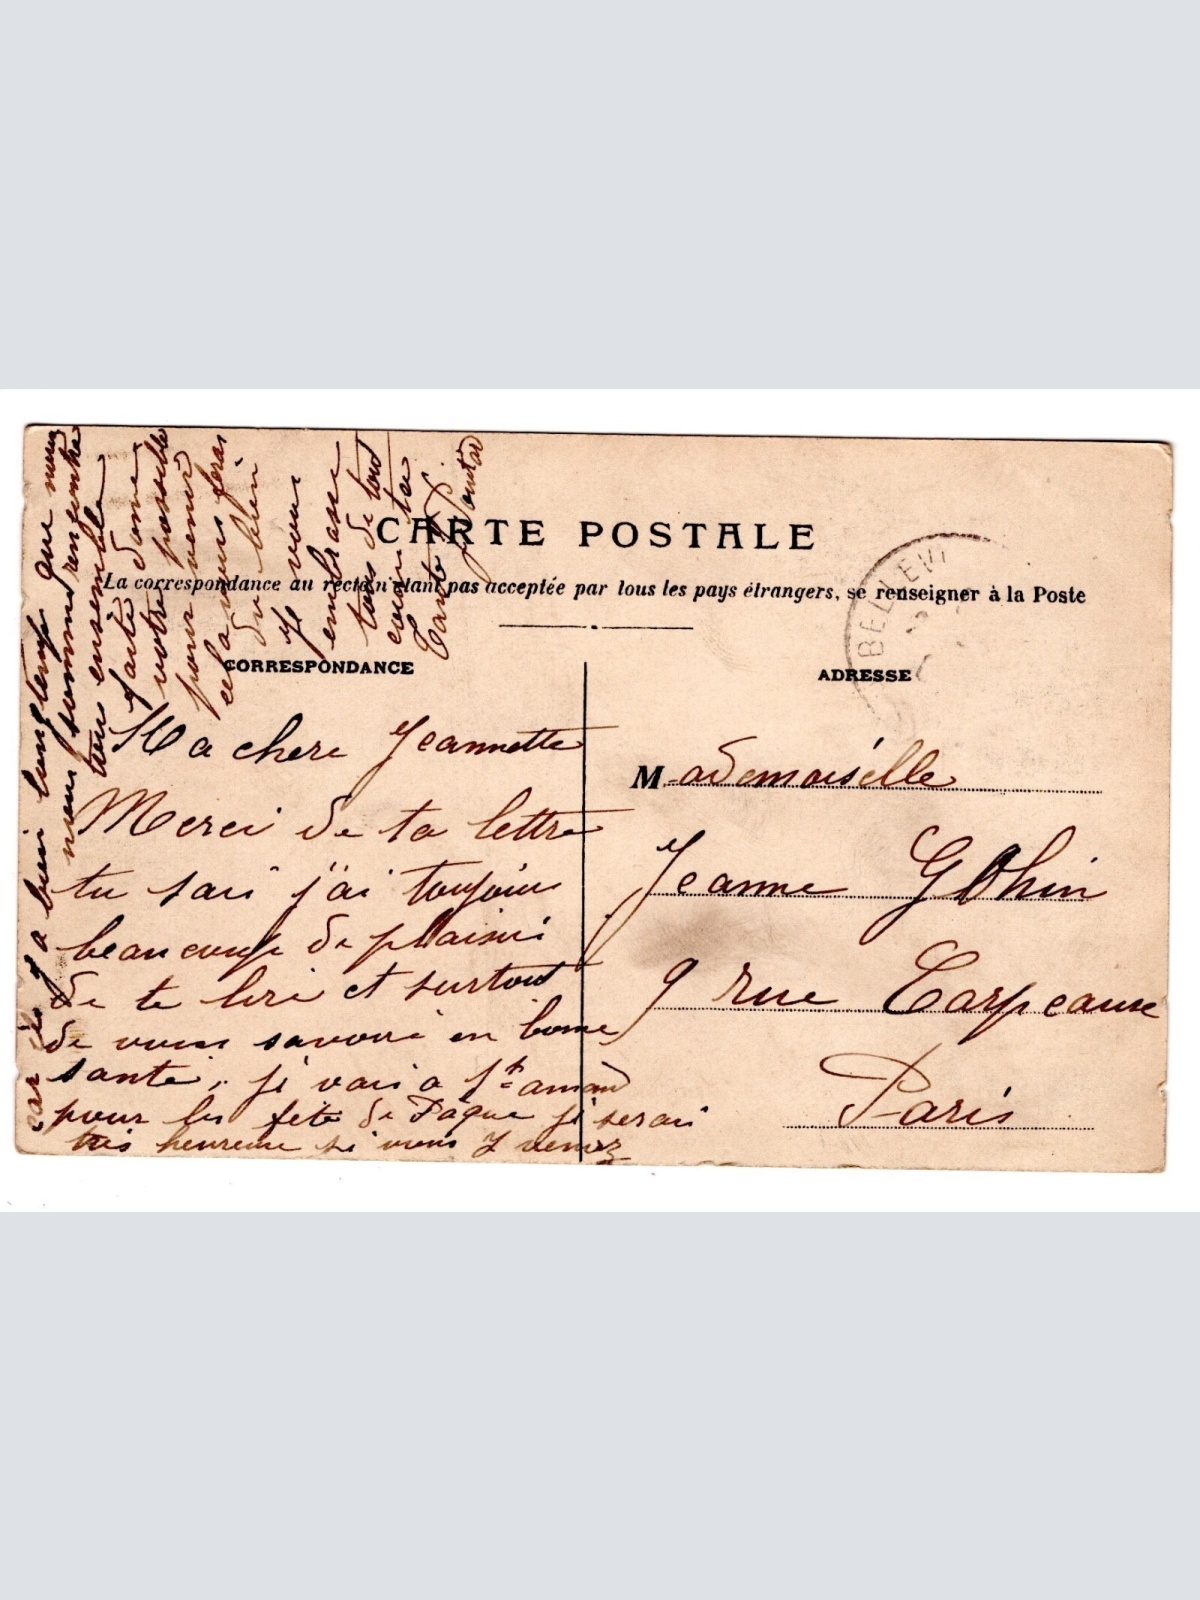 CARTE POSTALE
La correspondance au recto n'étant pas acceptée par tous les pays étrangers, se renseigner à la Poste
CORRESPONDANCE
Ma chere Jeannette
Merci de ta lettre
tu sais j'ai toujours
beaucoup de plaisir
de te lire et surtout
de vous savoir en bonne
sante, je vais a St amand
pour les fete de Paque je serais
très heureuse si vous y venez
car il y a bien longtemps que nous
nous sommes
tous ensemble
faite donc
votre possible
pour venir
cela nous feras
du bien
Je vous
embrasse
tous de tout
coeur ta
Tante
ADRESSE
BELLEVI
Mademoiselle
Jeanne Gohin
9 rue Carpeaux
Paris